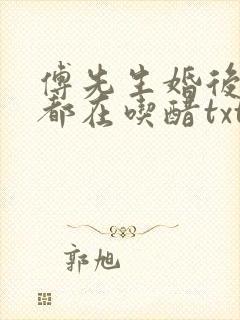 傅先生婚後
都在喫醋txt
郭旭